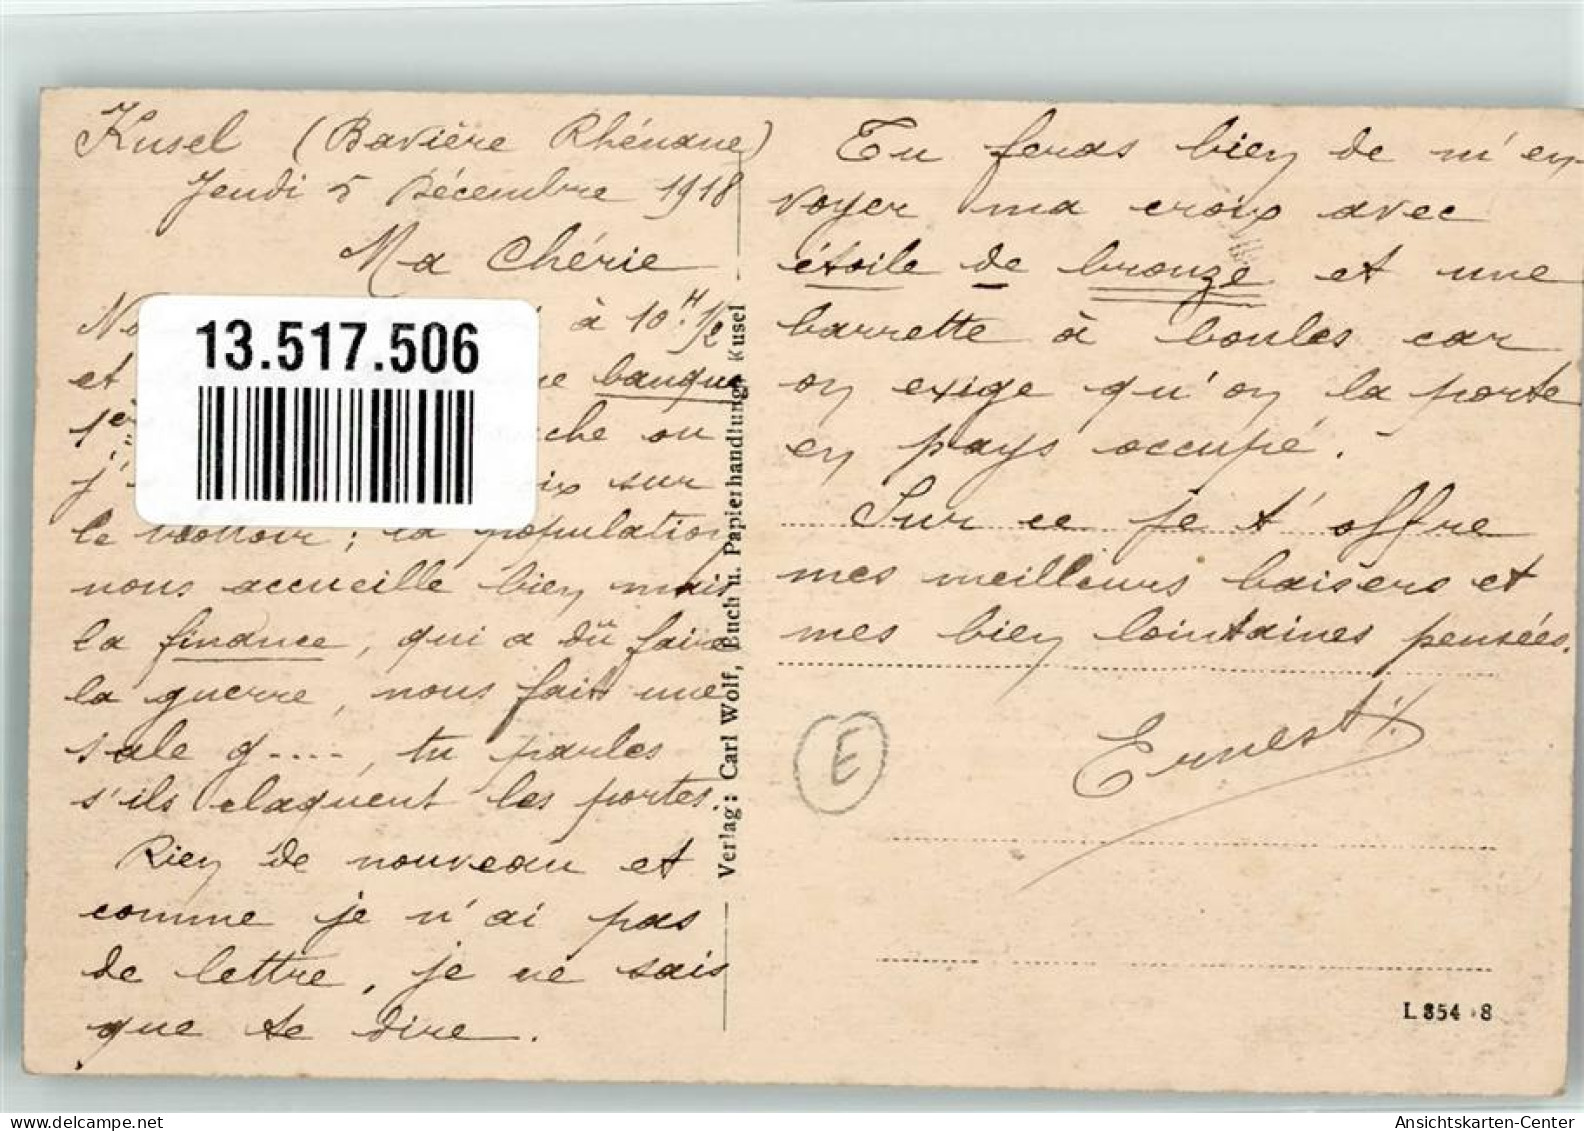 Kusel (Bavière Rhénane)
Jeudi 5 Décembre 1918
Ma Chérie
à 10H. 1/2
et banque
1er
ou
j' sur
le ; la population
nous accueille bien mais
la finance, qui a dû faire
la guerre, nous fait une
sale g...., tu parles
s'ils claquent les portes.
Rien de nouveau et
comme je n'ai pas
de lettre, je ne sais
que te dire.
13.517.506
Verlag: Carl Wolf, Buch u. Papierhandlung, Kusel
Tu feras bien de m'en-
voyer ma croix avec
étoile de bronze et une
barrette à boules car
on exige qu'on la porte
en pays occupé.
Sur ce je t'offre
mes meilleurs baisers et
mes bien lointaines pensées.
Ernest
E
L 854 8
Ansichtskarten-Center